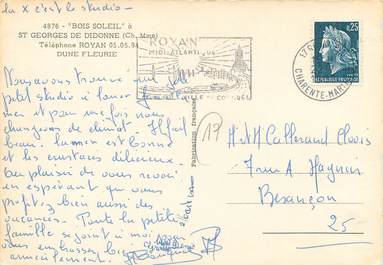 la X c'est le studio -
4876 - "BOIS SOLEIL" à
ST GEORGES DE DIDONNE (Ch. Mme)
Téléphone ROYAN 05.05.94
DUNE FLEURIE
ROYAN
MIDI ATLANTIQUE
CHARENTE-MARIT
0,25
REPUBLIQUE FRANÇAISE
Nous avons trouvé un
petit studio à louer
mer et pour une fois nous
changeons de climat. Il fait
beau. La mer est bonne
et les huitres délicieuses.
Au plaisir de vous revoir
en espérant que vous
profitez bien aussi des
vacances. Toute la petite
famille se joint à moi
vous embrasser bien
amicalement.
Fabrication française
17
M. et M Callerand Clovis
7 rue A
Besançon
25